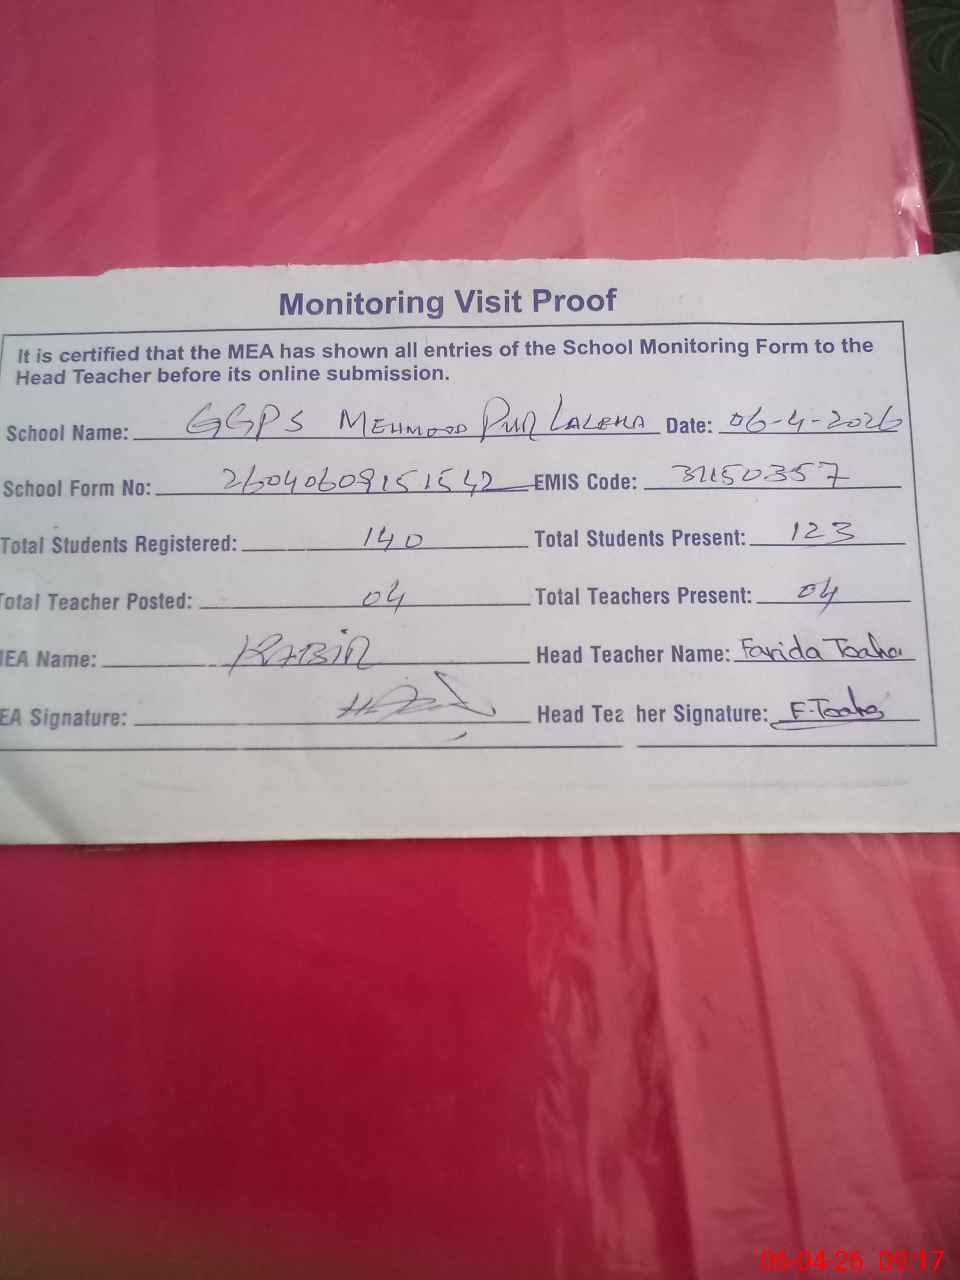 Monitoring Visit Proof
It is certified that the MEA has shown all entries of the School Monitoring Form to the
Head Teacher before its online submission.
School Name: GGPS MEHMOOD PUR LALEHA Date: 06-4-2026
School Form No: 26040609151542 EMIS Code: 31150357
Total Students Registered: 140 Total Students Present: 123
Total Teacher Posted: 04 Total Teachers Present: 04
MEA Name: KABIR Head Teacher Name: Farida Toaha
EA Signature: Head Tea her Signature: F.Toaha
06-04-26 09:17